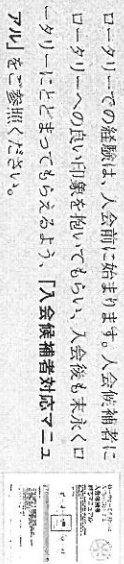 ロータリーでの経験は、入会前に始まります。入会候補者に
ロータリーへの良い印象を抱いてもらい、入会後も末永くロ
ータリーにとどまってもらえるよう、「入会候補者対応マニュ
アル」をご参照ください。